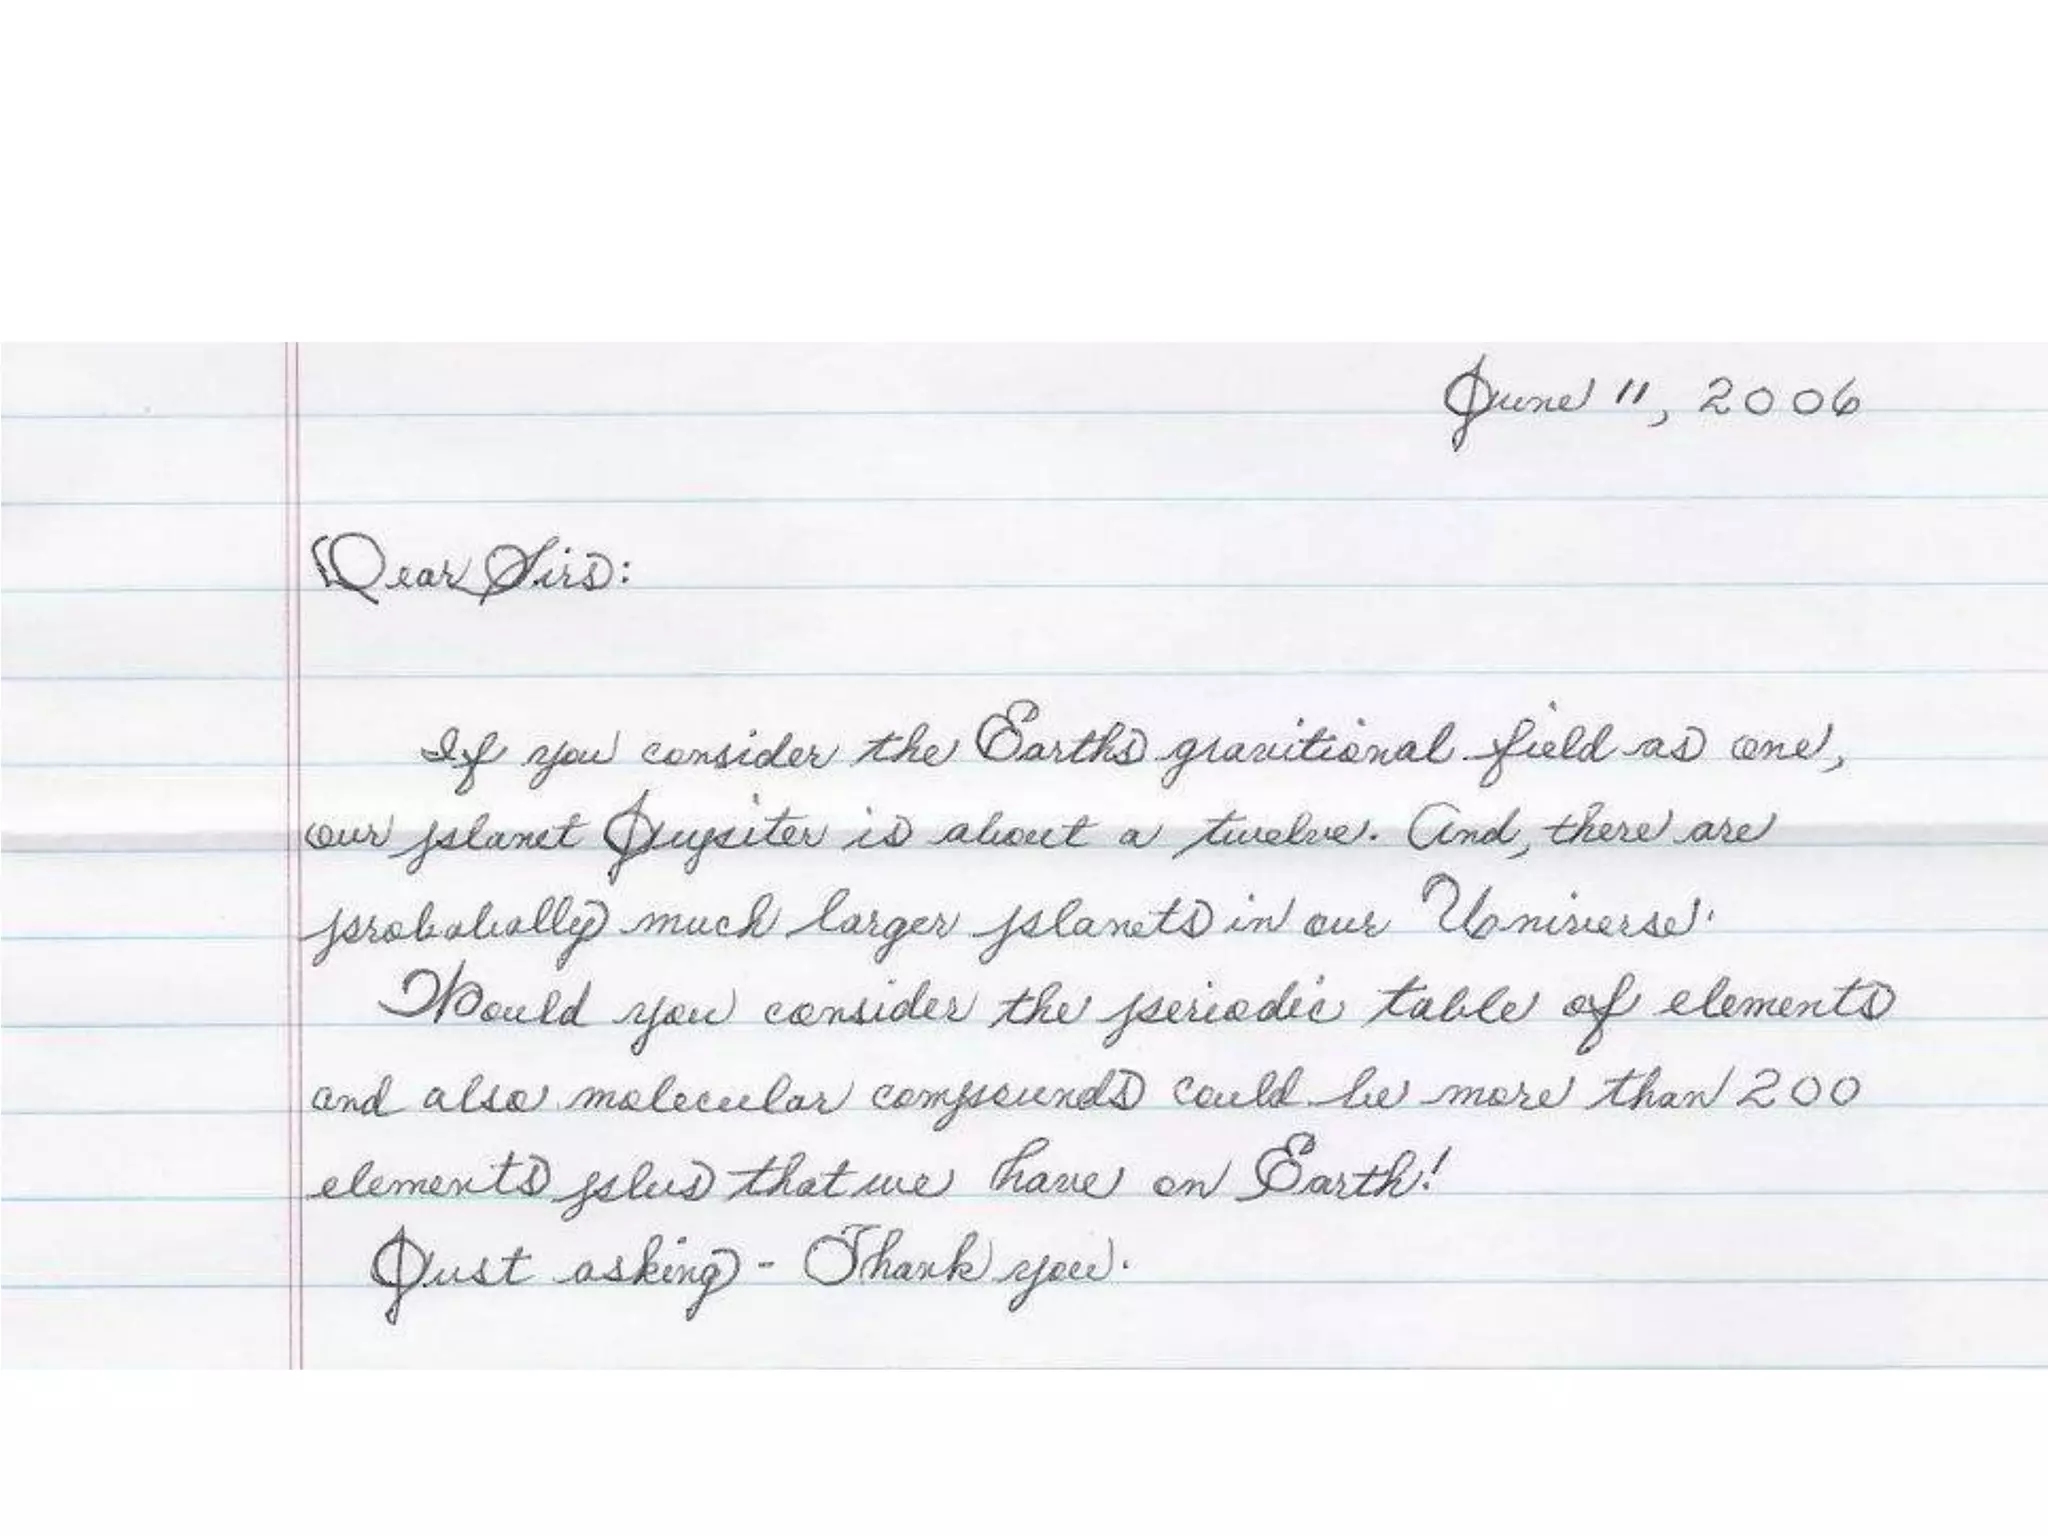 June 11, 2006
Dear Sirs:
If you consider the Earths gravitional field as one,
our planet Jupiter is about a twelve. And, there are
probabally much larger planets in our Universe.
Would you consider the periodic table of elements
and also molecular compounds could be more than 200
elements plus that we have on Earth!
Just asking - Thank you.